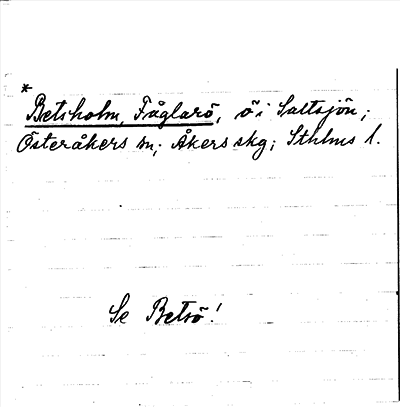 *
Betsholm, Fåglarö, ö i Saltsjön;
Österåkers sn; Åkers skg; Sthlms l.
Se Betsö!